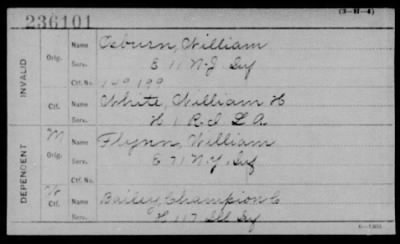 (3-H-4)
236101
INVALID
Orig.
Name Osburn, William
Serv. E 11 N.J. Inf
Ctf. No. 149199
Ctf.
Name White, William H
Serv. H 1 R I L A
DEPENDENT
M
Orig.
Name Flynn, William
Serv. E 71 N.Y. Inf
Ctf. No.
W
Ctf.
Name Bailey, Champion C
Serv. H 117 Ill Inf
6-1303